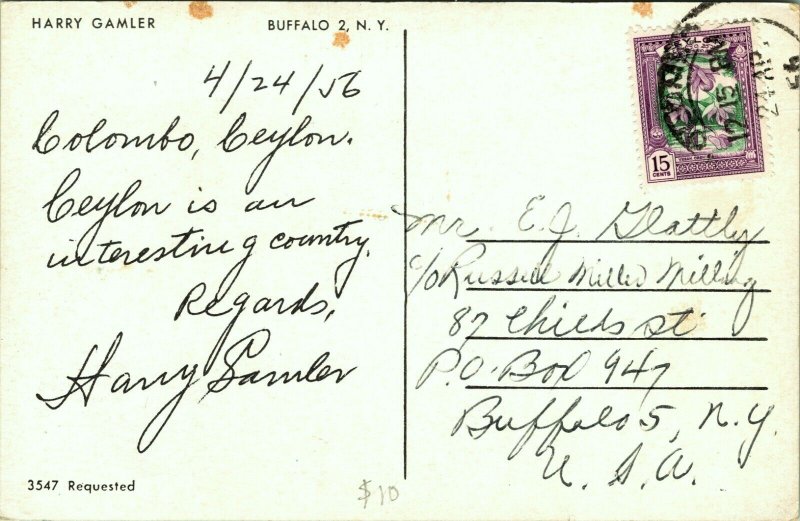 HARRY GAMLER
BUFFALO 2, N. Y.
4/24/56
Colombo, Ceylon.
Ceylon is an
interesting country.
Regards,
Harry Gamler
3547 Requested
$10
15
CENTS
Mr. E. J. Glattly
c/o Russell Miller Milling
87 Childs St.
P.O. Box 947
Buffalo 5, N.Y.
U. S. A.